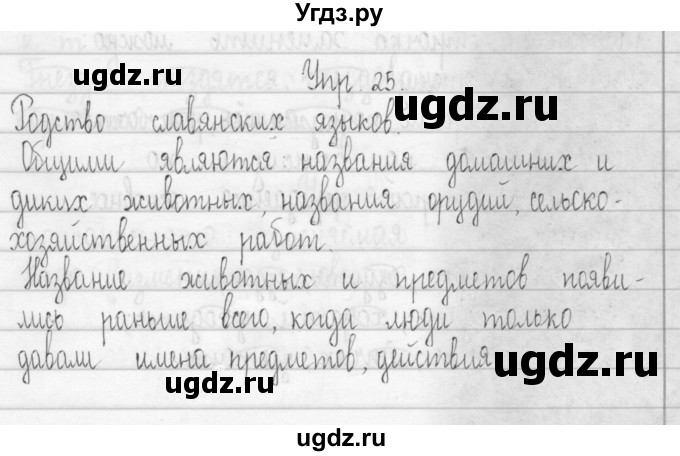 Угдз.ру
Упр 25.
ugdz.ru
ugdz.ru
Родство славянских языков.
Общими являются названия домашних и
ugdz.ru
диких животных, названия орудий, сельско-
хозяйственных работ.
Название животных и предметов появи-
лись раньше всего, когда люди только
давали имена предметов, действия
ugdz.ru
ugdz.ru
ugdz.ru